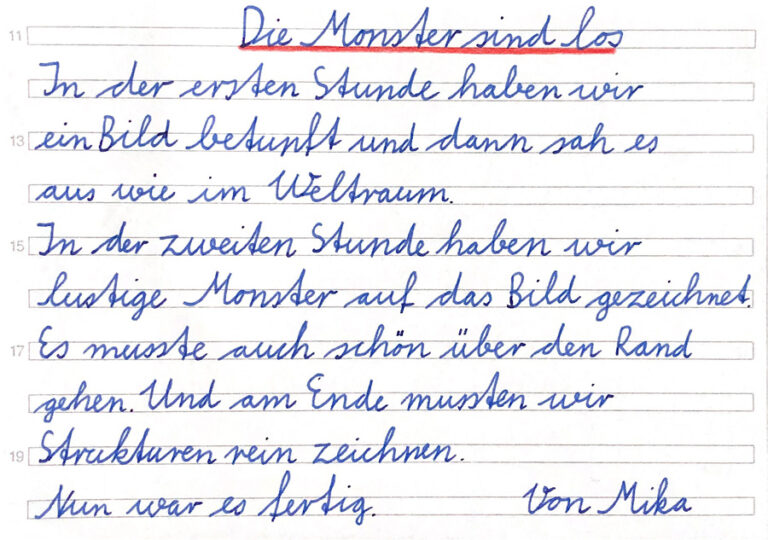 11 Die Monster sind los
In der ersten Stunde haben wir
13 ein Bild betupft und dann sah es
aus wie im Weltraum.
15 In der zweiten Stunde haben wir
lustige Monster auf das Bild gezeichnet.
17 Es musste auch schön über den Rand
gehen. Und am Ende mussten wir
19 Strukturen rein zeichnen.
Nun war es fertig. Von Mika